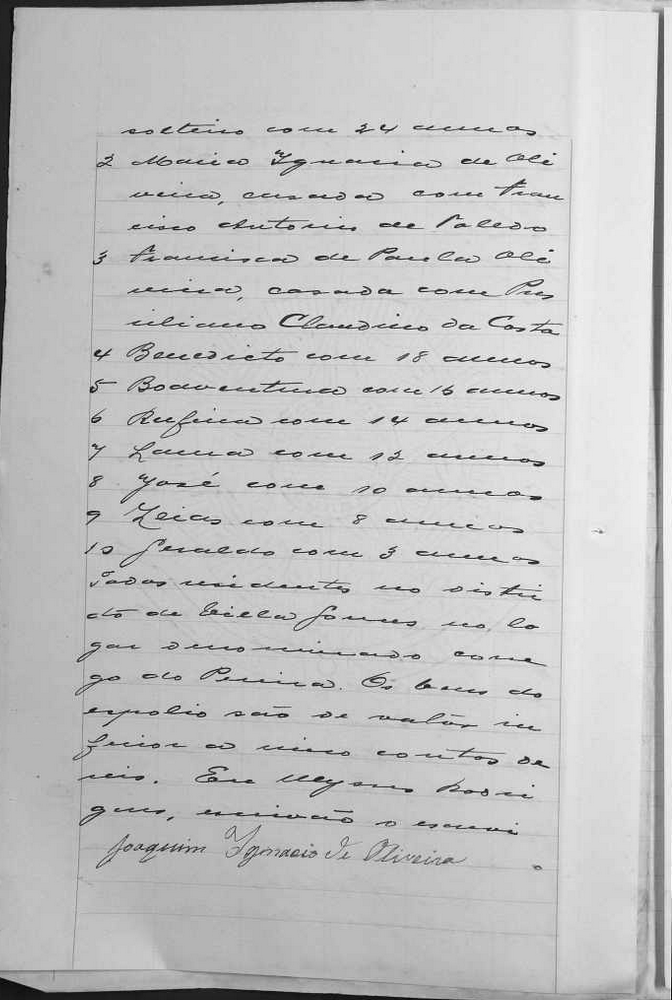 solteiro com 24 annos
2 Maria Ignacia de Oli
veira, casada com Fran
cisco Antonio de Toledo
3 Francisca de Paula Oli
veira, casada com Pris
ciliano Claudino da Costa
4 Benedicto com 18 annos
5 Boaventura com 16 annos
6 Rufina com 14 annos
7 Laura com 12 annos
8 José com 10 annos
9 Zeias com 8 annos
10 Geraldo com 3 annos
Todos residentes no distri
cto de Villa Gomes, no lo
gar denominado corre
go do Pereira. Os bens do
espolio são de valor in
ferior a cinco contos de
reis. Eu Ulysses Rodri
gues, escrivão o escrevi
Joaquim Ignacio de Oliveira